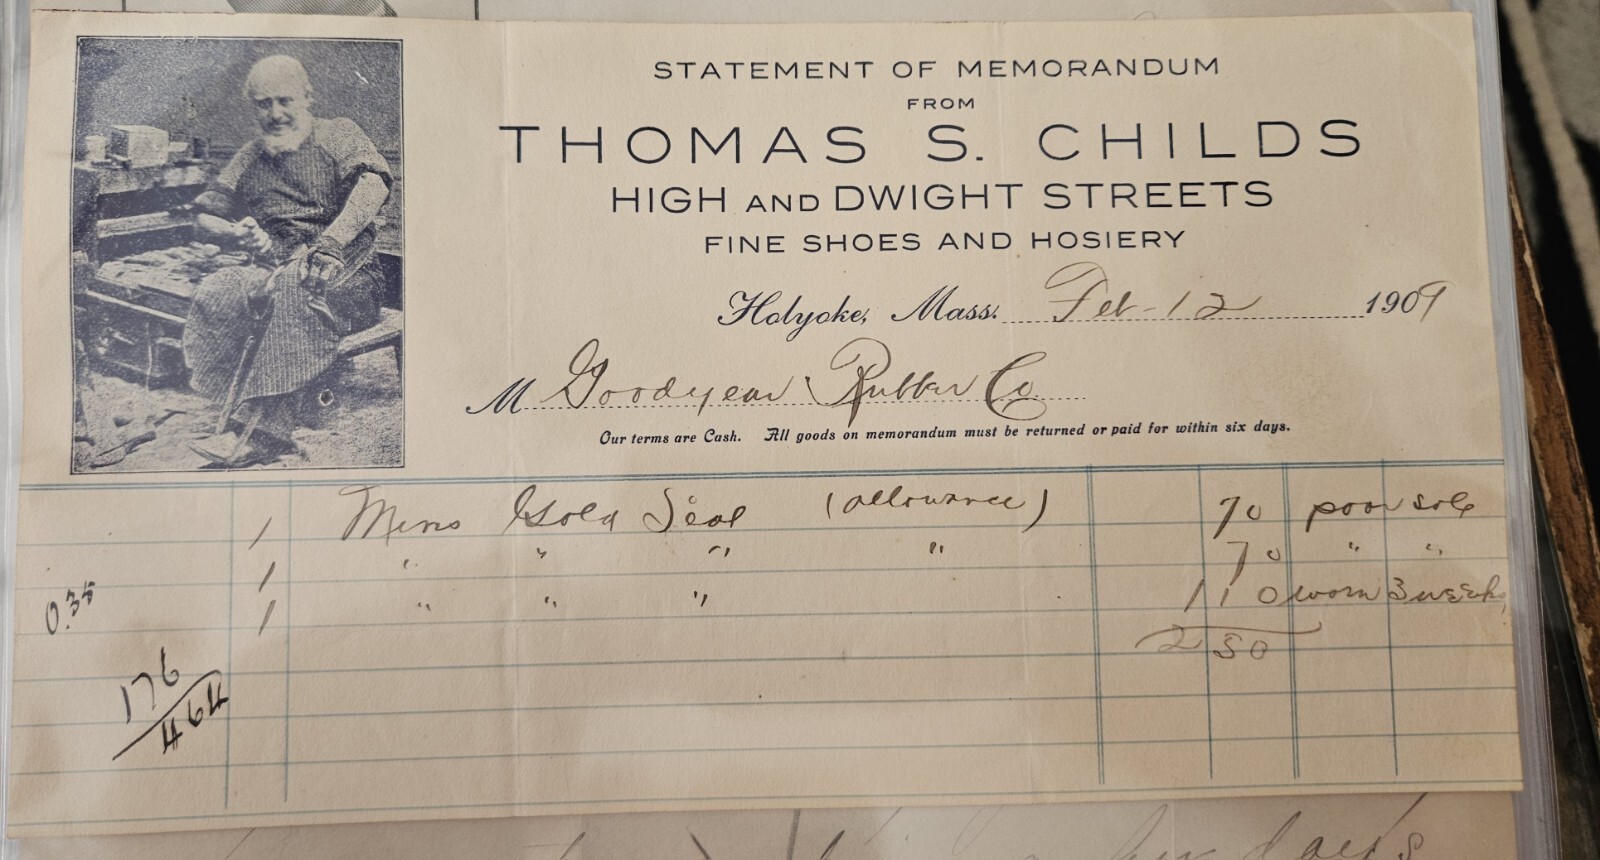 STATEMENT OF MEMORANDUM
FROM
THOMAS S. CHILDS
HIGH AND DWIGHT STREETS
FINE SHOES AND HOSIERY
Holyoke, Mass. Feb - 12 1909
M Goodyear Rubber Co
Our terms are Cash. All goods on memorandum must be returned or paid for within six days.
1 Mens Gold Seal (allowance) 70 poor sole
1 " " " " 70 " "
0.35 1 " " " 1 10 worn 3 weeks
2 50
176/464
days